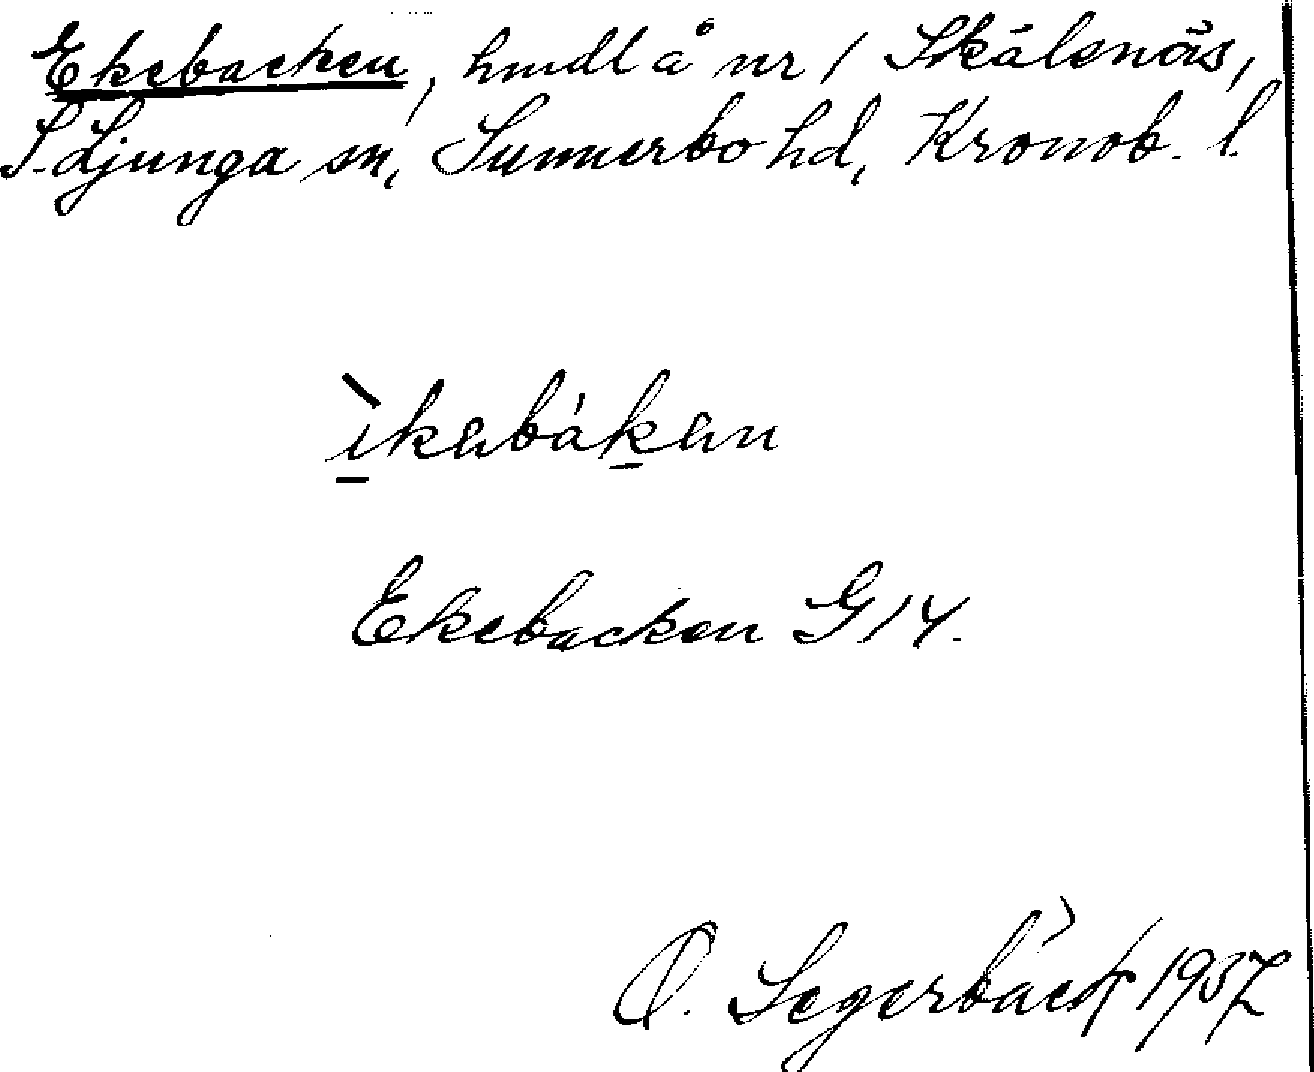 Ekebacken, hmdl å nr 1 Skålsnäs,
S. Ljunga sn, Sunnerbo hd, Kronob. l.
ìkəbákən
Ekebacken G14.
O. Segerbäck 1937